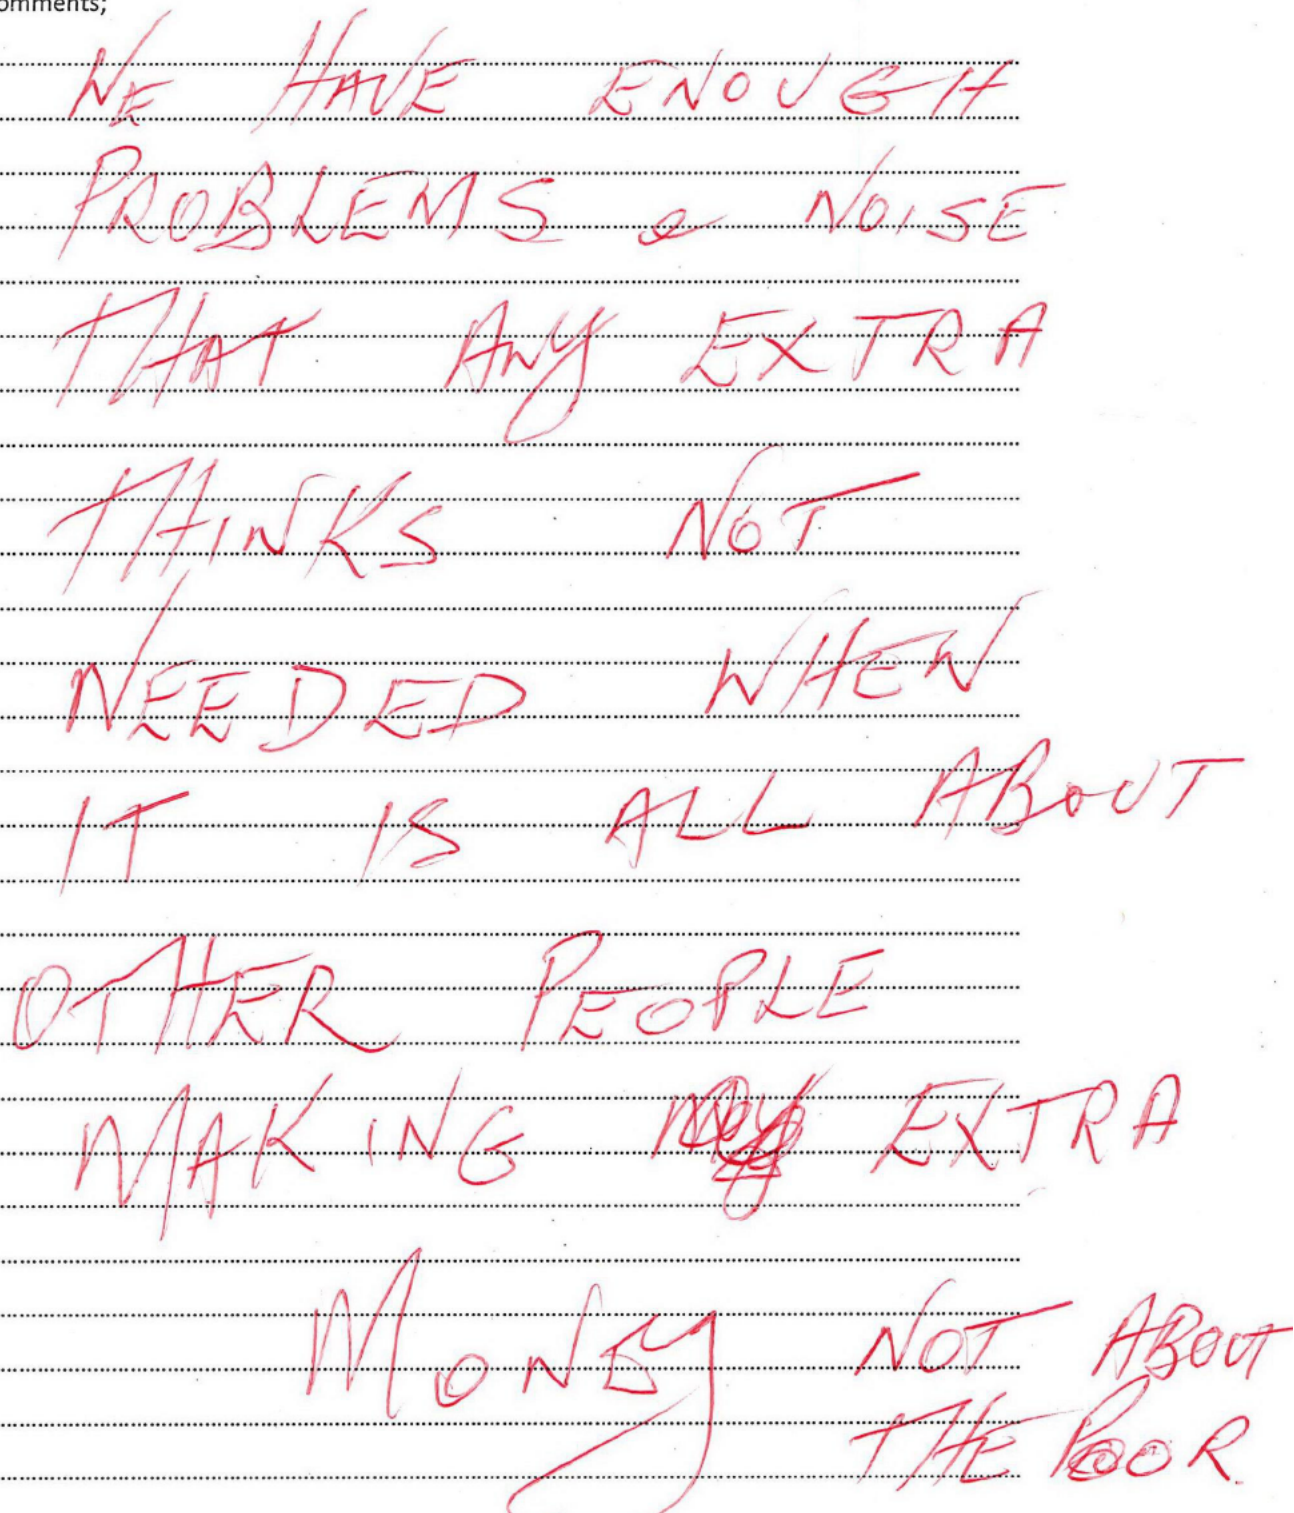 omments;
WE HAVE ENOUGH
PROBLEMS & NOISE
THAT ANY EXTRA
THINKS NOT
NEEDED WHEN
IT IS ALL ABOUT
OTHER PEOPLE
MAKING EXTRA
MONEY NOT ABOUT
THE POOR.